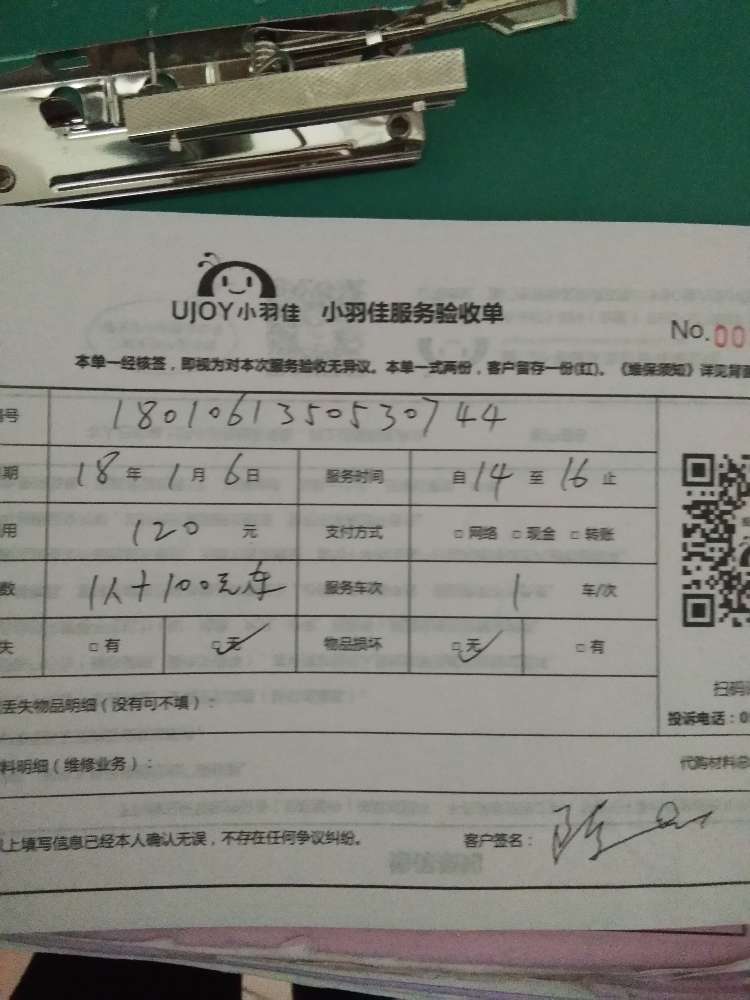 UJOY小羽佳 小羽佳服务验收单
No.00
本单一经核签，即视为对本次服务验收无异议。本单一式两份，客户留存一份(红)。《维保须知》详见背面
号 18010613505530744
期 18年1月6日 服务时间 自14至16止
用 120元 支付方式 □网络 □现金 □转账
数 1人+100元车 服务车次 1 车/次
失 □有 □无 物品损坏 □无 □有
丢失物品明细（没有可不填）：
扫码
投诉电话：0
料明细（维修业务）：
代购材料总
上填写信息已经本人确认无误，不存在任何争议纠纷。
客户签名：